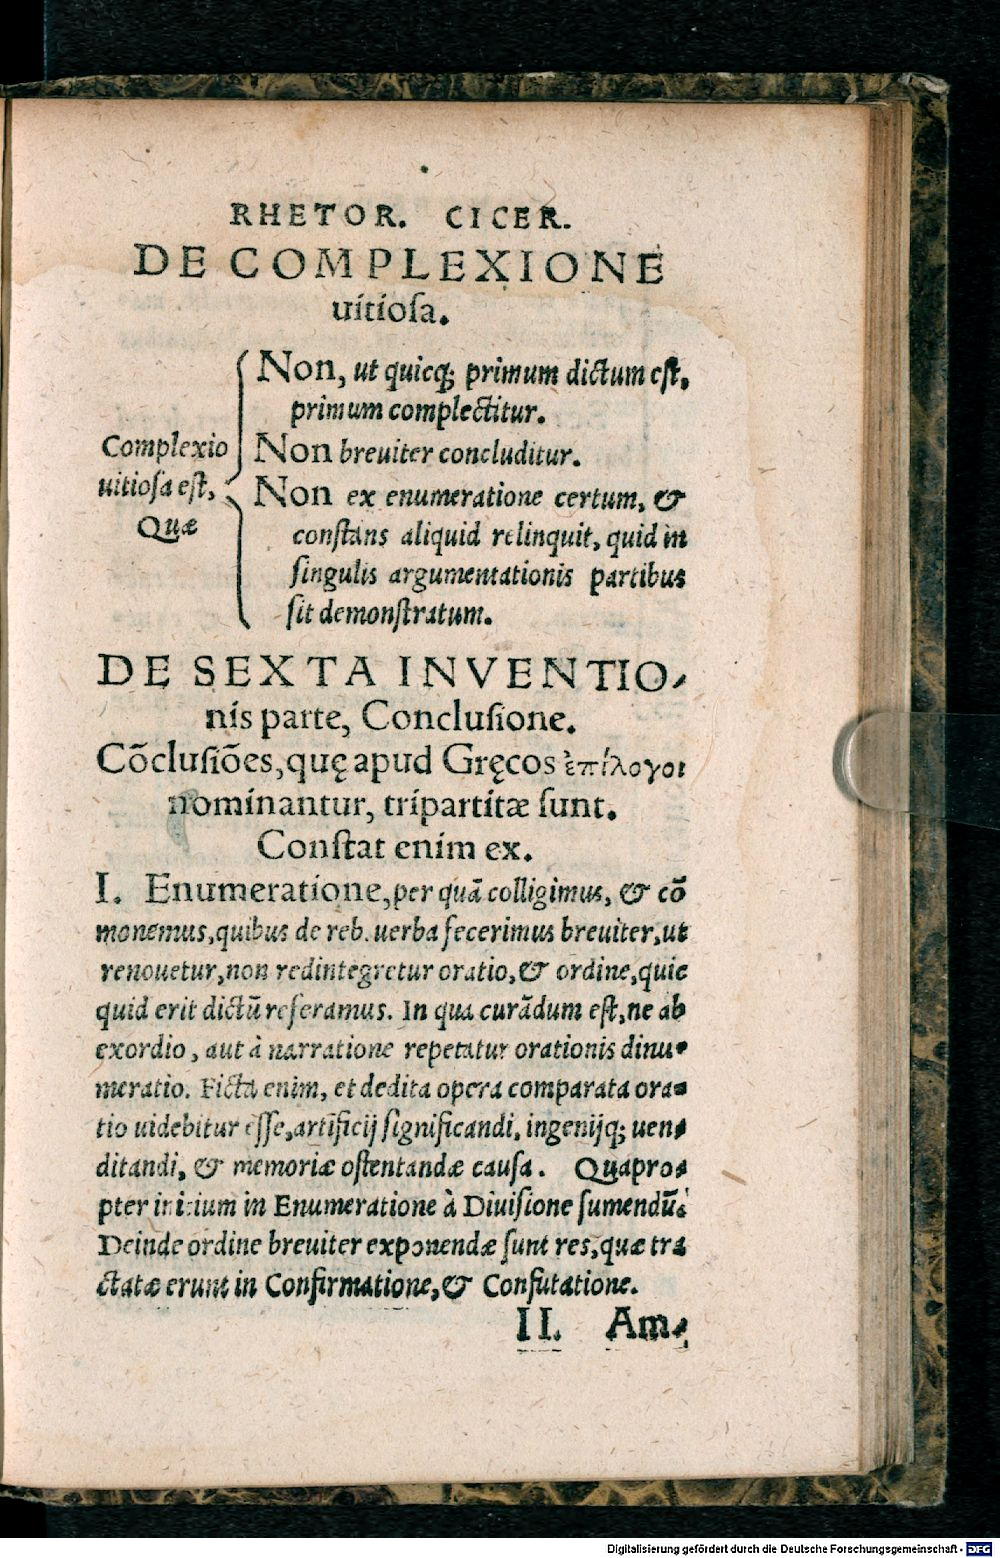 RHETOR. CICER.
DE COMPLEXIONE
uitiosa.
Complexio
uitiosa est,
Quæ
Non, ut quicq; primum dictum est,
primum complectitur.
Non breuiter concluditur.
Non ex enumeratione certum, &
constans aliquid relinquit, quid in
singulis argumentationis partibus
sit demonstratum.
DE SEXTA INVENTIO-
nis parte, Conclusione.
Cōclusiōes, quę apud Gręcos ἐπίλογοι
nominantur, tripartitæ sunt.
Constat enim ex.
I. Enumeratione, per quā colligimus, & cō
monemus, quibus de reb. uerba fecerimus breuiter, ut
renouetur, non redintegretur oratio, & ordine, quic
quid erit dictū referamus. In qua curādum est, ne ab
exordio, aut à narratione repetatur orationis dinu-
meratio. Ficta enim, et dedita opera comparata ora-
tio uidebitur esse, artificij significandi, ingenijq; uen-
ditandi, & memoriæ ostentandæ causa. Quapro-
pter initium in Enumeratione à Diuisione sumendū.
Deinde ordine breuiter exponendæ sunt res, quæ tra
ctatæ erunt in Confirmatione, & Confutatione.
II. Am-
Digitalisierung gefördert durch die Deutsche Forschungsgemeinschaft - DFG